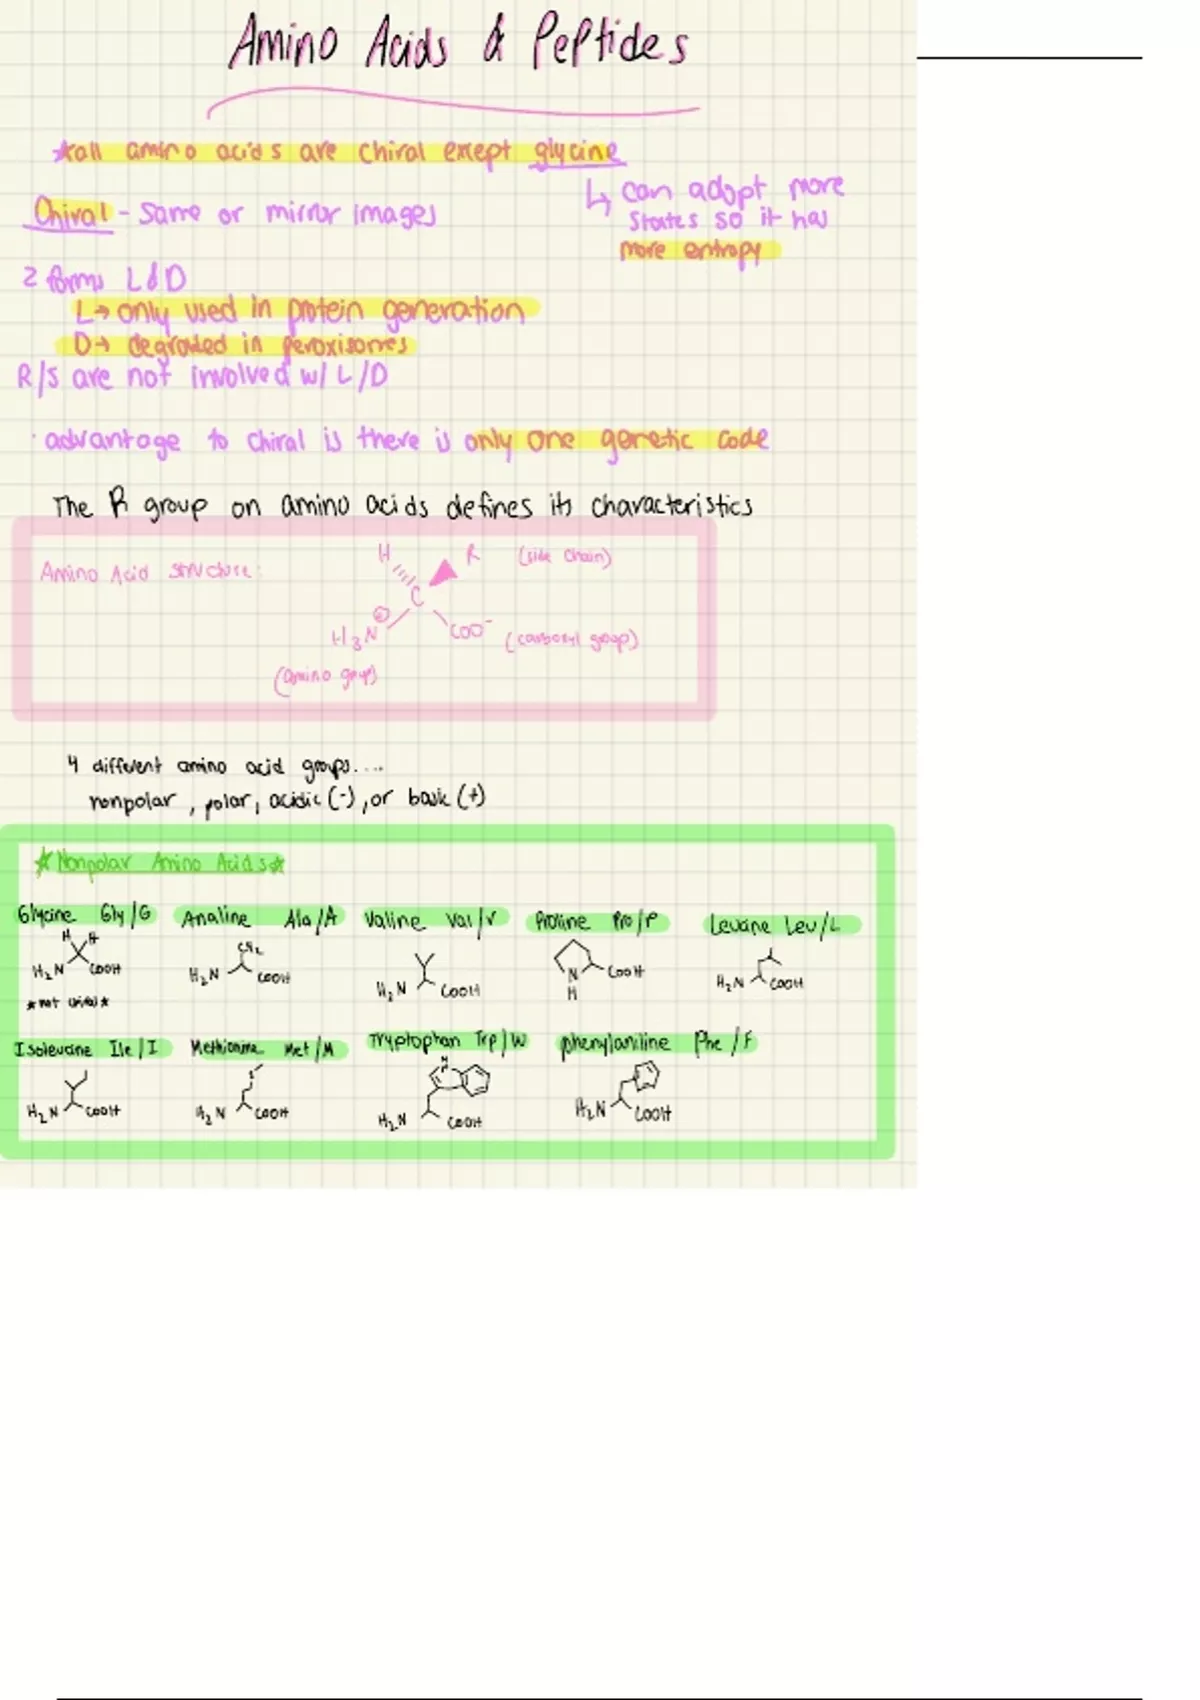 Amino Acids & Peptides
*all amino acids are chiral except glycine
↳ can adopt more
states so it has
more entropy
Chiral - same or mirror images
2 forms L & D
L → only used in protein generation
D → degraded in peroxisomes
R/S are not involved w/ L/D
· advantage to chiral is there is only one genetic code
The R group on amino acids defines its characteristics
Amino Acid structure:
H R (side chain)
C
H3N⊕ COO⁻ (carboxyl group)
(amino group)
4 different amino acid groups....
nonpolar, polar, acidic (-), or basic (+)
*Nonpolar Amino Acids*
Glycine Gly/G Analine Ala/A Valine Val/V Proline Pro/P Leucine Leu/L
H H
H2N COOH
*not chiral*
H2N COOH
H2N COOH
N COOH
H
H2N COOH
Isoleucine Ile/I Methionine Met/M Tryptophan Trp/W phenylaniline Phe/F
H2N COOH
H2N COOH
H
N
H2N COOH
H2N COOH